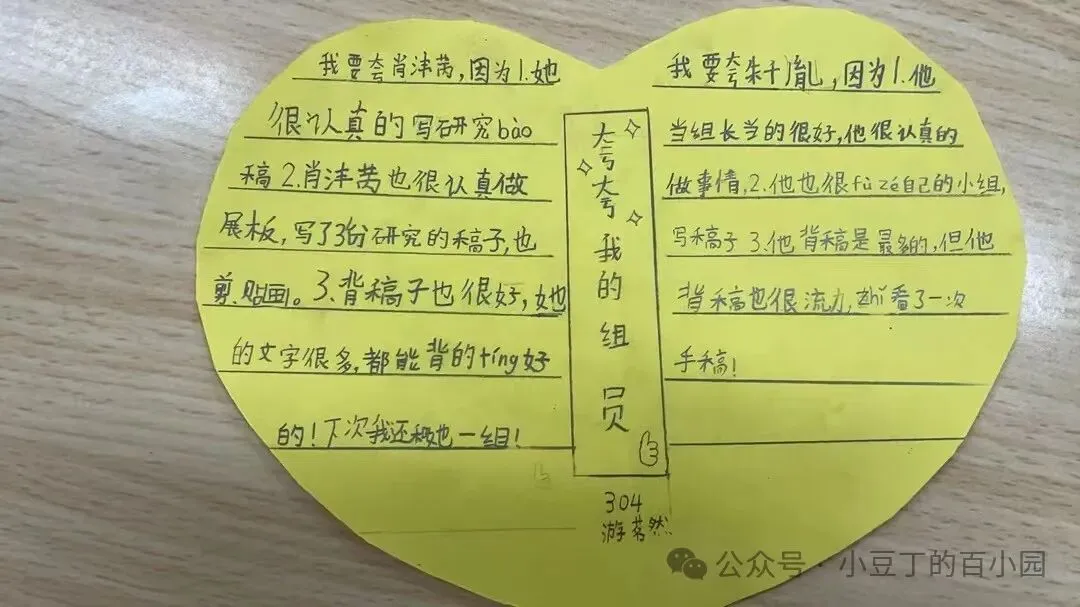 我要夸肖沣芮，因为1.她
很认真的写研究bào
稿2.肖沣芮也很认真做
展板，写了3份研究的稿子，也
剪贴画。3.背稿子也很好，她
的文字很多，都能背的tíng好
的！下次我还和她一组！
夸夸我的组员
304
游茗然
我要夸朱千胤，因为1.他
当组长当的很好，他很认真的
做事情，2.他也很fù zé自己的小组，
写稿子 3.他背稿是最多的，但他
背稿也很流力，zhǐ看了一次
手稿！
公众号·小豆丁的百小园